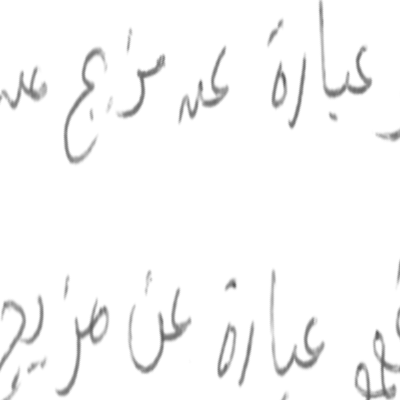 عبارة عن مزيج عن
عبارة عن مزيج